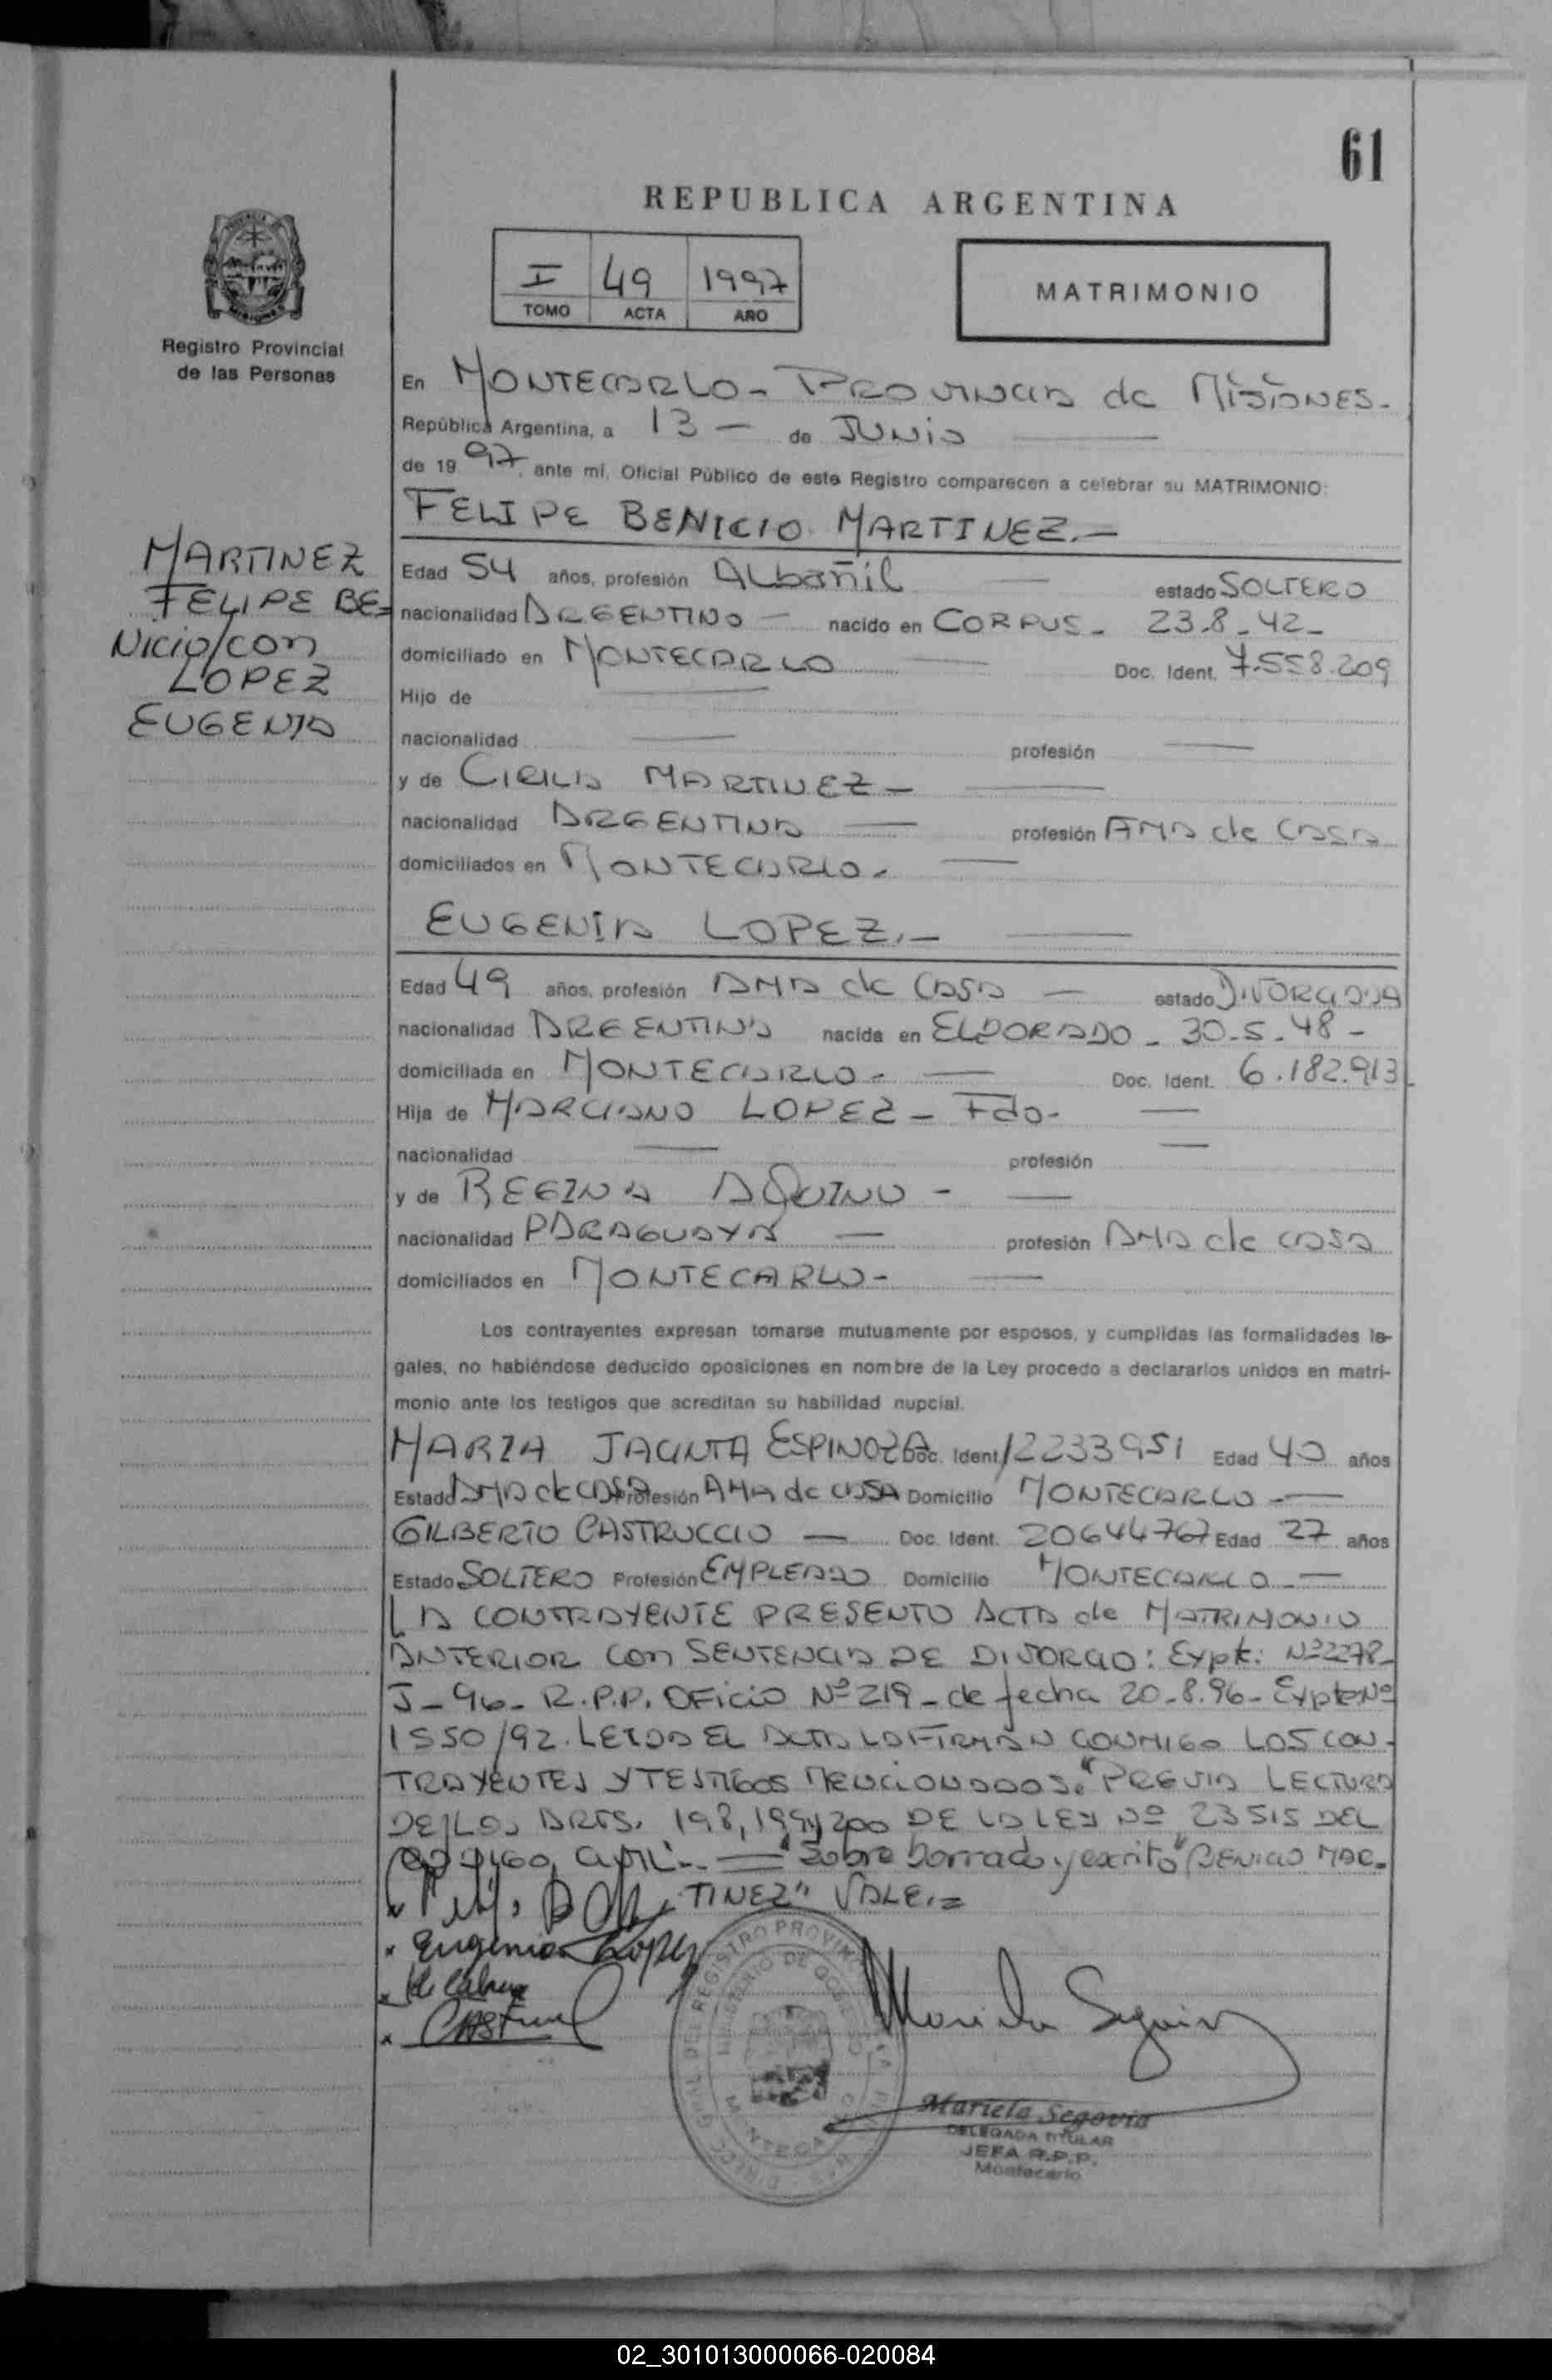 61
REPUBLICA ARGENTINA
I 49 1997
TOMO ACTA AÑO
MATRIMONIO
Registro Provincial
de las Personas
MARTINEZ
FELIPE BE=
NICIO/con
LOPEZ
EUGENIA
En MONTECARLO- PROVINCIA de MISIONES-
República Argentina, a 13 — de JUNIO
de 1997, ante mí, Oficial Público de este Registro comparecen a celebrar su MATRIMONIO:
FELIPE BENICIO MARTINEZ.—
Edad 54 años, profesión ALbañil — estado SOLTERO
nacionalidad ARGENTINO — nacido en CORPUS- 23-8-42-
domiciliado en MONTECARLO — Doc. Ident. 7.558.209
Hijo de —
nacionalidad — profesión —
y de CIRILIA MARTINEZ — —
nacionalidad ARGENTINA — profesión AMA de CASA
domiciliados en MONTECARLO- —
EUGENIA LOPEZ.— —
Edad 49 años, profesión AMA de CASA — estado DIVORCIADA
nacionalidad ARGENTINA nacida en ELDORADO - 30-5-48-
domiciliada en MONTECARLO- — Doc. Ident. 6.182.913
Hija de MARCIANO LOPEZ - Fdo- —
nacionalidad — profesión —
y de REGINA AQUINO - —
nacionalidad PARAGUAYA — profesión AMA de CASA
domiciliados en MONTECARLO- —
Los contrayentes expresan tomarse mutuamente por esposos, y cumplidas las formalidades le-
gales, no habiéndose deducido oposiciones en nombre de la Ley procedo a declararlos unidos en matri-
monio ante los testigos que acreditan su habilidad nupcial.
MARIA JACINTA ESPINOZA Doc. Ident. 12233951 Edad 40 años
Estado AMA de CASA Profesión AMA de CASA Domicilio MONTECARLO -—
GILBERTO CASTRUCCIO — Doc. Ident. 20644767 Edad 27 años
Estado SOLTERO Profesión EMPLEADO Domicilio MONTECARLO -—
LA CONTRAYENTE PRESENTO ACTA de MATRIMONIO
ANTERIOR con SENTENCIA DE DIVORCIO: Expte: Nº2278-
J-96- R.P.P. OFicio Nº 219-de fecha 20-8.96- Expte Nº
1550/92. LEIDA EL ACTA LA FIRMAN CONMIGO LOS CON-
TRAYENTES Y TESTIGOS MENCIONADOS. "PREVIA LECTURA
DE LOS ARTS. 198, 199 y 200 DE LA LEY Nº 23515 DEL
CODIGO Civil-. = "Sobre borrado y escrito" BENICIO MAR-
TINEZ" VALE.=
Eugenia Lopez
Mariela Segovia
Mariela Segovia
DELEGADA TITULAR
JEFA R.P.P.
Montecarlo
02_301013000066-020084